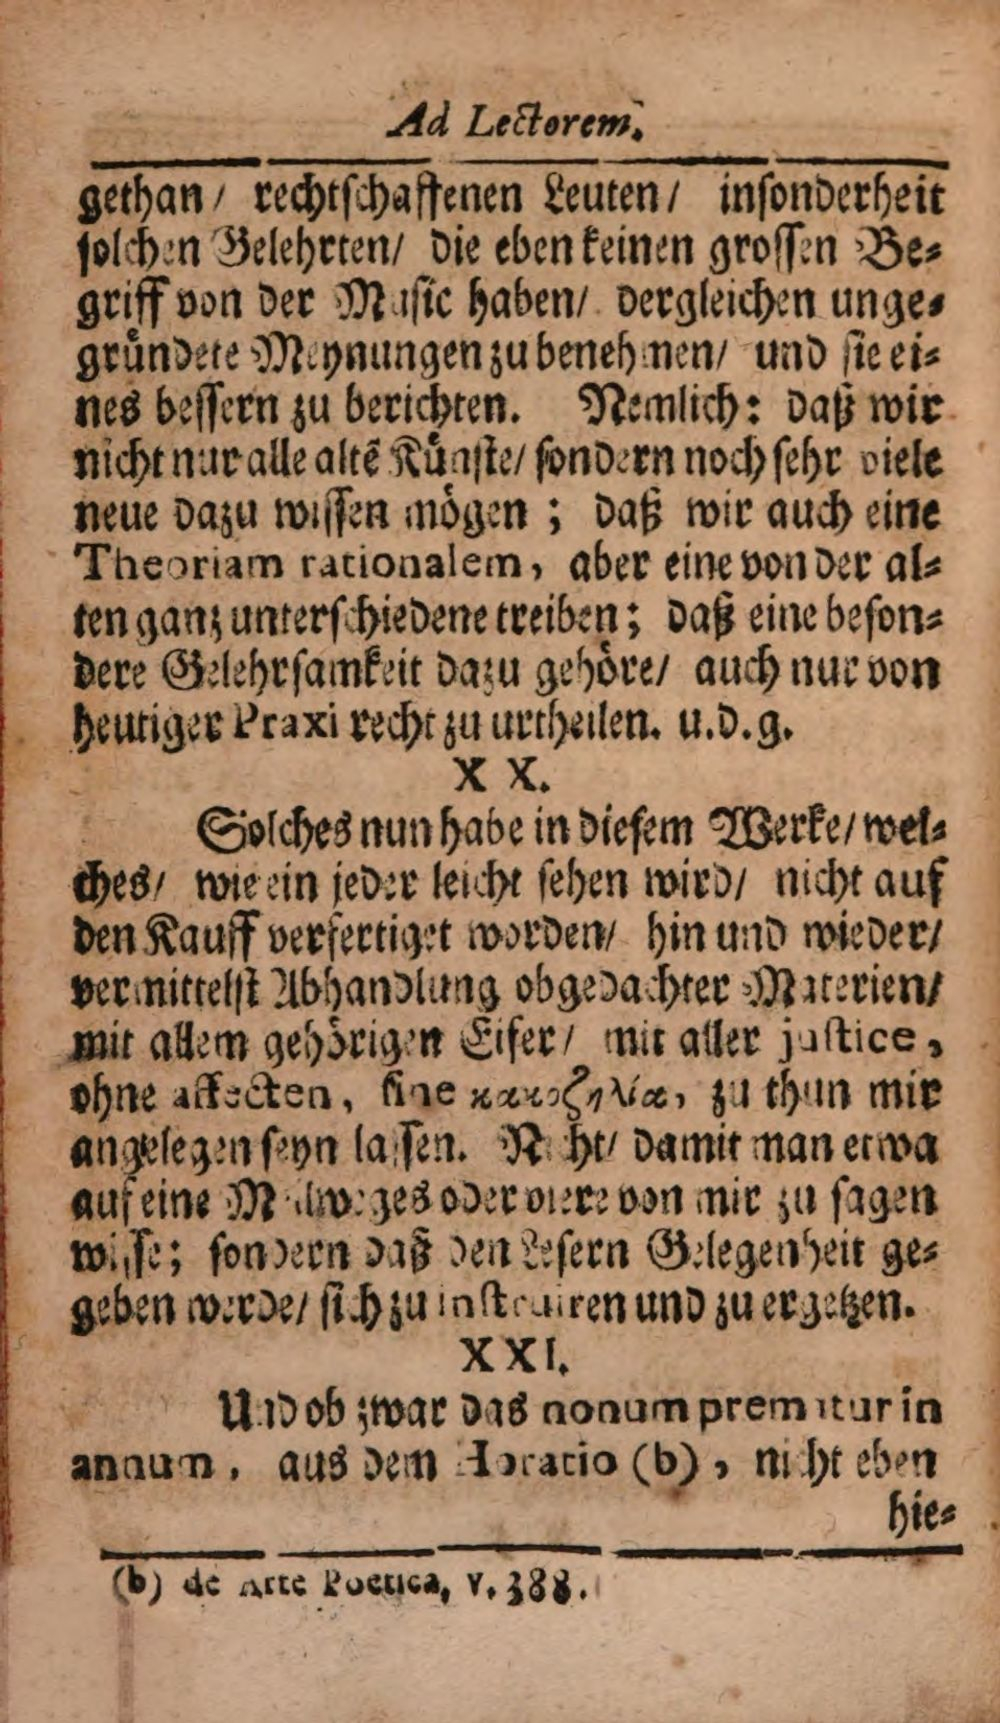 Ad Lectorem.
gethan/ rechtschaffenen Leuten/ insonderheit
solchen Gelehrten/ die eben keinen grossen Be-
griff von der Music haben/ dergleichen unge-
gründete Meynungen zu benehmen/ und sie ei-
nes bessern zu berichten. Nemlich: daß wir
nicht nur alle altē Künste/ sondern noch sehr viele
neue dazu wissen mögen; daß wir auch eine
Theoriam rationalem, aber eine von der al-
ten ganz unterschiedene treiben; daß eine beson-
dere Gelehrsamkeit dazu gehöre/ auch nur von
heutiger Praxi recht zu urtheilen. u.d.g.
XX.
Solches nun habe in diesem Werke/ wel-
ches/ wie ein jeder leicht sehen wird/ nicht auf
den Kauff verfertiget worden/ hin und wieder/
vermittelst Abhandlung obgedachter Materien/
mit allem gehörigen Eifer/ mit aller justice,
ohne affecten, sine κακοζηλία, zu thun mir
angelegen seyn lassen. Nicht/ damit man etwa
auf eine oder von mir zu sagen
wisse; sondern daß den Lesern Gelegenheit ge-
geben werde/ sich zu instruiren und zu ergetzen.
XXI.
Und ob zwar das nonum prematur in
annum, aus dem Horatio (b), nicht eben
hie-
(b) de Arte Poetica, v. 388.